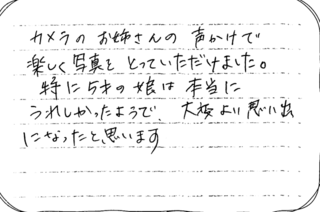 カメラのお姉さんの声かけで
楽しく写真をとっていただけました。
特に5才の娘は本当に
うれしかったようで、大変よい思い出
になったと思います